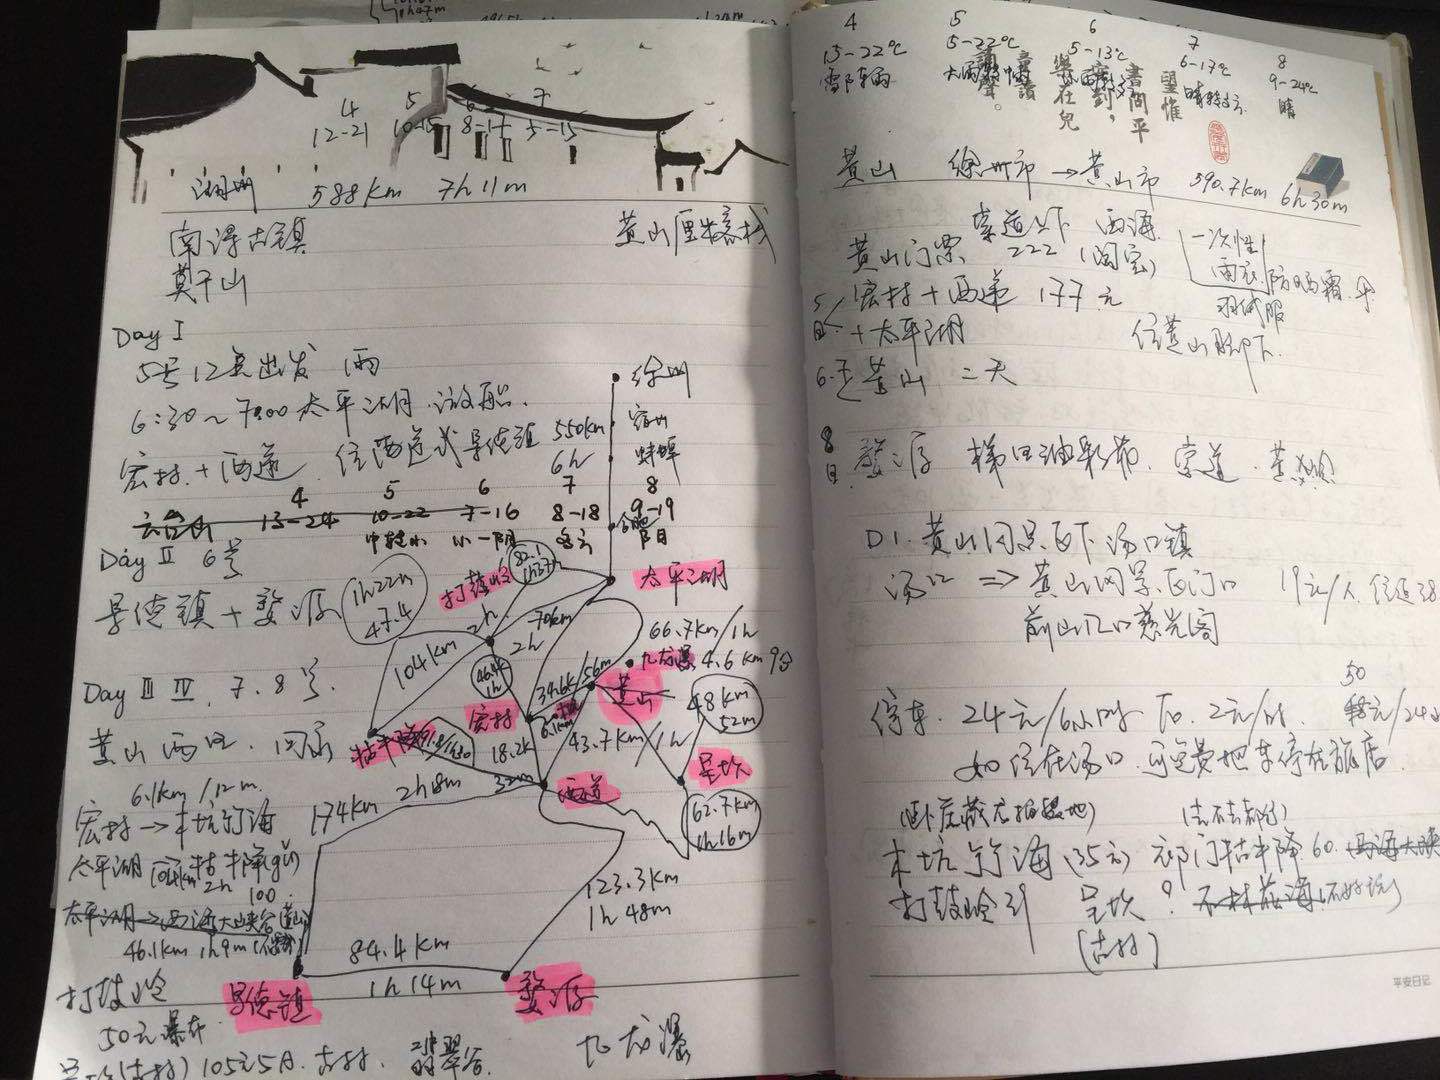 4 5 6 7
12-21 10-15 8-15 5-15
湖州 588km 7h11m
南浔古镇 黄山厘米客栈
莫干山
Day I
5号12点出发 雨
6:30~7:00太平湖.游船.
宏村+西递 住西递或景德镇
徐州
宿州
550km
6h
蚌埠
4 5 6 7 8
云台山 13-24 10-22 7-16 8-18 9-19
中转小 小-阴 多云 阴
合肥
Day II 6号
景德镇+婺源
1h22m
47.4
打鼓岭
82.1
1h37m
太平湖
2h
70km
2h
104km
46.4k
1h
66.7km/1h
九龙瀑 4.6km 9分
34.6k/56m
黄山
48km
52m
Day III IV 7.8号.
黄山西区.回家
宏村
牯牛降
6.1km
18.2k
32m
43.7km/1h
呈坎
西递
62.7km
1h16m
6.1km/12m.
宏村→木坑竹海
174km
2h8m
太平湖 牯牛降(gǔ)
104km 2h
100
太平湖→西海大峡谷
46.1km 1h9m
123.3km
1h48m
84.4km
1h14m
打鼓岭
景德镇
婺源
50元瀑布
(古村)105元5A.古村. 翡翠谷.
九龙瀑
4 5 6 7 8
13-22℃ 5-22℃ 5-13℃ 6-17℃ 9-24℃
雷阵雨 晴转多云 晴
望惟
書問平
安到,
樂在兒
童讀
書聲。
黄山 徐州市→黄山市 590.7km 6h30m
索道上下 西海
黄山门票 222 (淘宝)
一次性
雨衣 防晒霜.伞
羽绒服
5日
宏村+西递 177元
+太平湖
住黄山脚下.
6.7 黄山 二天
8日 婺源 梯田油彩花.索道.篁岭
D1.黄山风景区下汤口镇
汤口⇒黄山风景区门口 19元/人.往返38
前山入口慈光阁
停车.24元/6小时 下.2元/时. 50
元/24h
如住在汤口.可免费把车停在旅店.
(卧虎藏龙拍摄地) (去不去都行)
木坑竹海(35元) 祁门牯牛降60. 西海大峡
打鼓岭 呈坎?
(古村)
平安日记